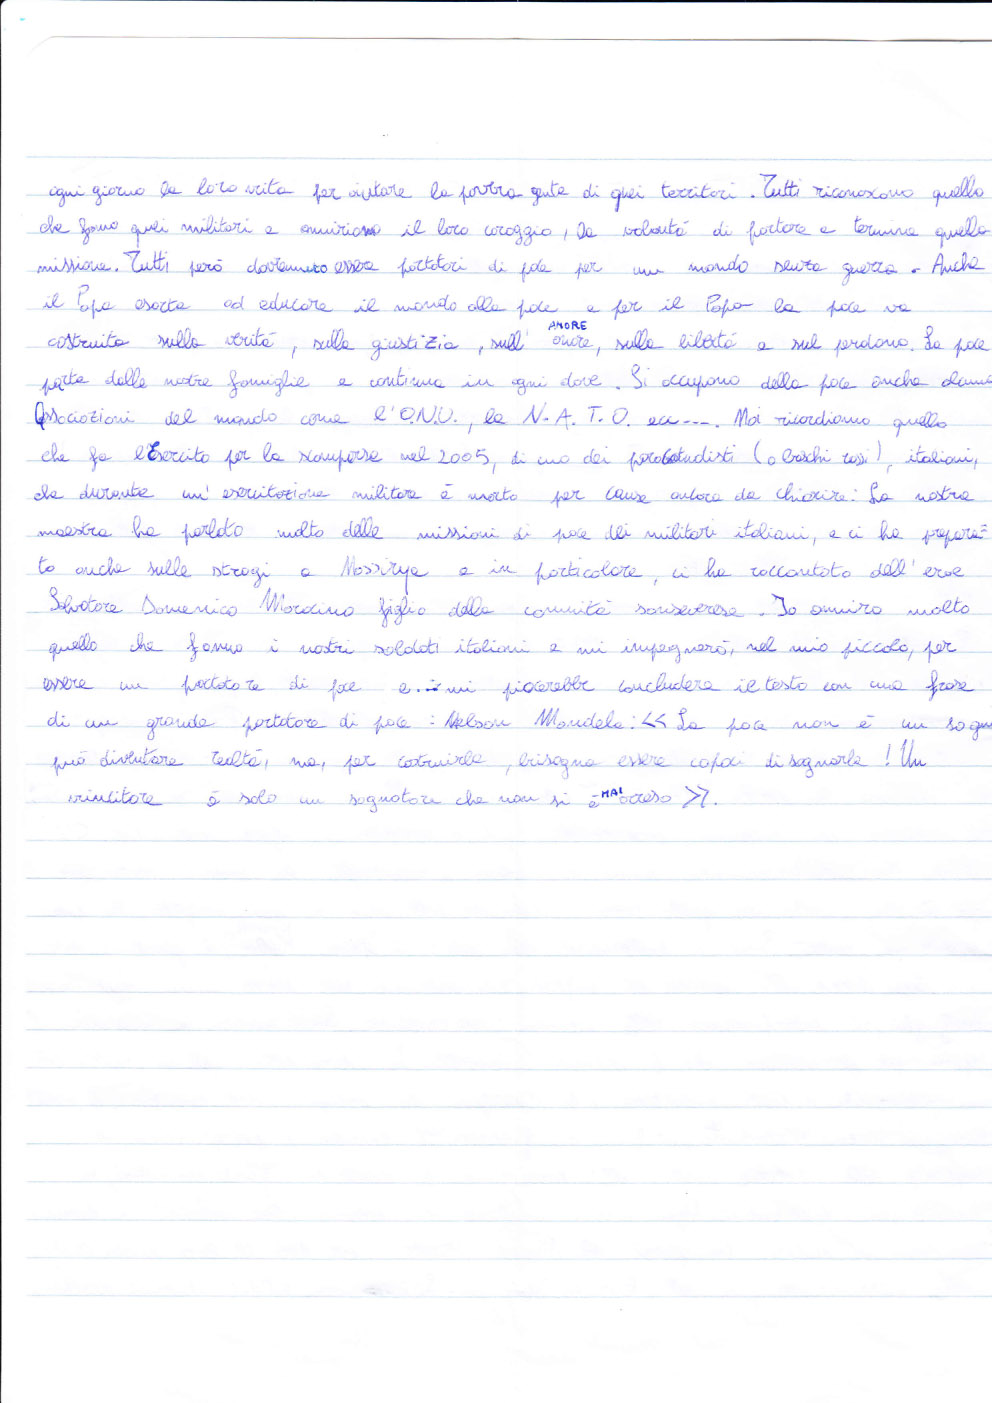 ogni giorno la loro vita per aiutare la povera gente di quei territori. Tutti riconoscono quello
che fanno quei militari e ammirano il loro coraggio, la volontà di portare a termine quella
missione. Tutti però dovremmo essere portatori di pace per un mondo senza guerra. Anche
il Papa esorta ad educare il mondo alla pace e per il Papa la pace va
costruita sulla verità, sulla giustizia, sull' AMORE, sulla libertà e sul perdono. La pace
parte dalle nostre famiglie e continua in ogni dove. Si occupano della pace anche alcune
Associazioni del mondo come l'O.N.U., la N.A.T.O. ecc.... Noi ricordiamo quello
che fa l'Esercito per la scomparsa nel 2005, di uno dei paracadudisti (o baschi rossi), italiani,
che durante un'esercitazione militare è morto per cause ancora da chiarire. La nostra
maestra ha parlato molto delle missioni di pace dei militari italiani, e ci ha prepara=
to anche sulle stragi a e in particolare, ci ha raccontato dell'eroe
Salvatore Domenico Marracino figlio della comunità sanseverese. Io ammiro molto
quello che fanno i nostri soldati italiani e mi impegnerò, nel mio piccolo, per
essere un portatore di pace e mi piacerebbe concludere il testo con una frase
di un grande portatore di pace: Nelson Mandela: << La pace non è un sogno
può diventare realtà, ma, per costruirla, bisogna essere capaci di sognarla! Un
vincitore è solo un sognatore che non si è MAI arreso >>.